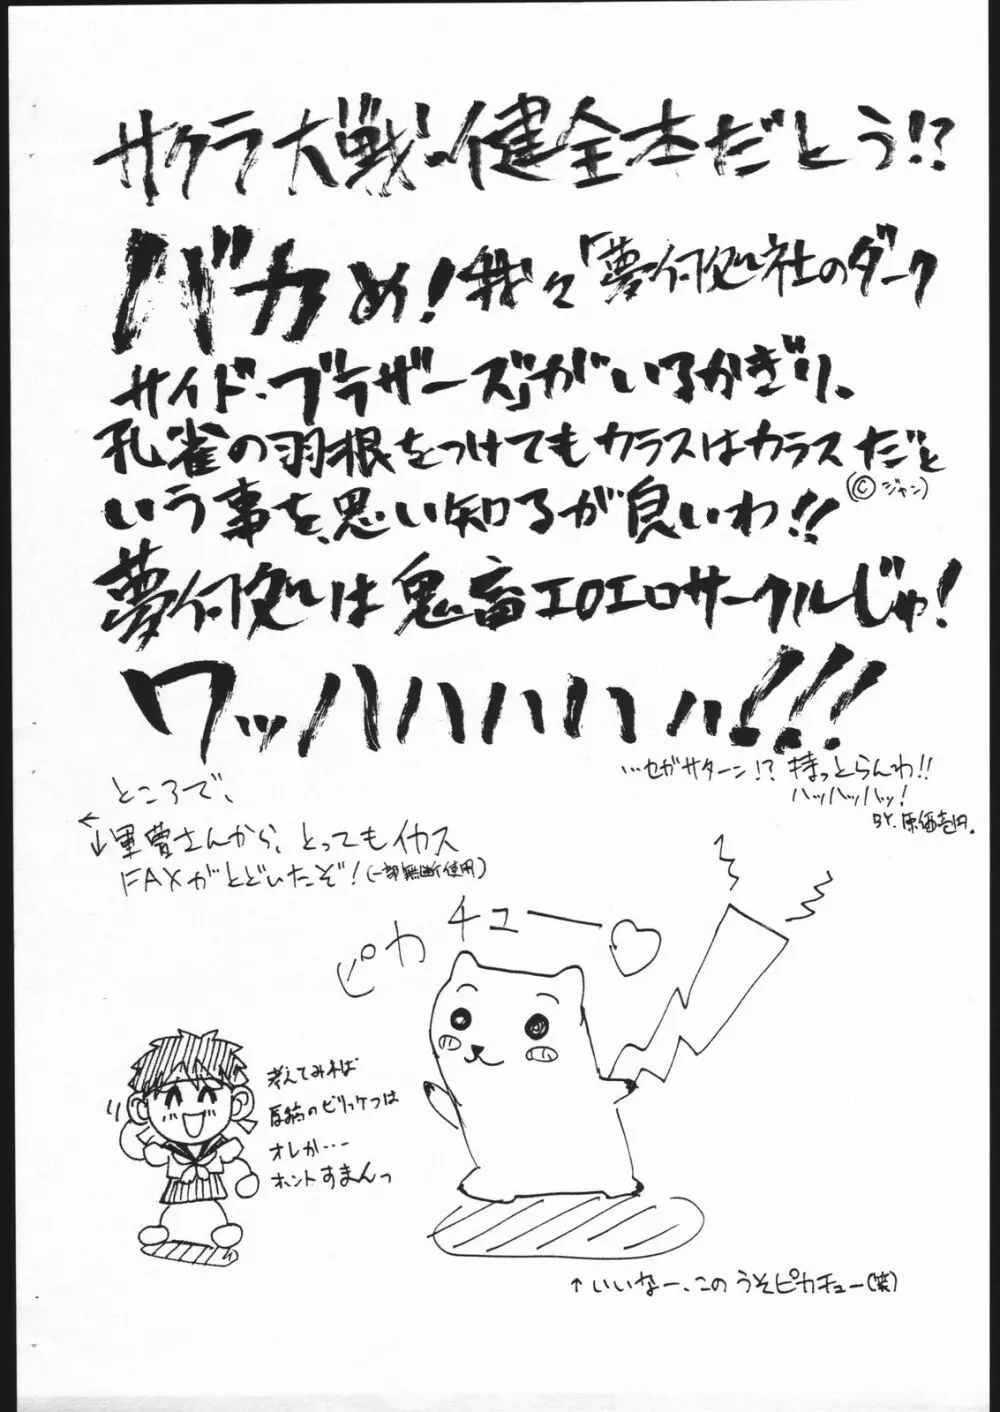 サクラ大戦で健全本だとう!?
バカめ!我々「夢何処社のダーク
サイド・ブラザーズ」がいるかぎり、
孔雀の羽根をつけてもカラスはカラスだと
(©ジャン)
いう事を思い知るが良いわ!!
夢何処は鬼畜エロエロサークルじゃ!
ワッハハハハハハ!!!
…セガサターン!?持っとらんわ!!
ハッハッハッ!
BY.原価壱円。
ところで、
さんから、とってもイカス
FAXがとどいたぞ!(一部無断使用)
ピカチュー♡
考えてみれば
原稿のビリッケツは
オレか…
ホントすまんっ
↑いいなー、このうそピカチュー(笑)